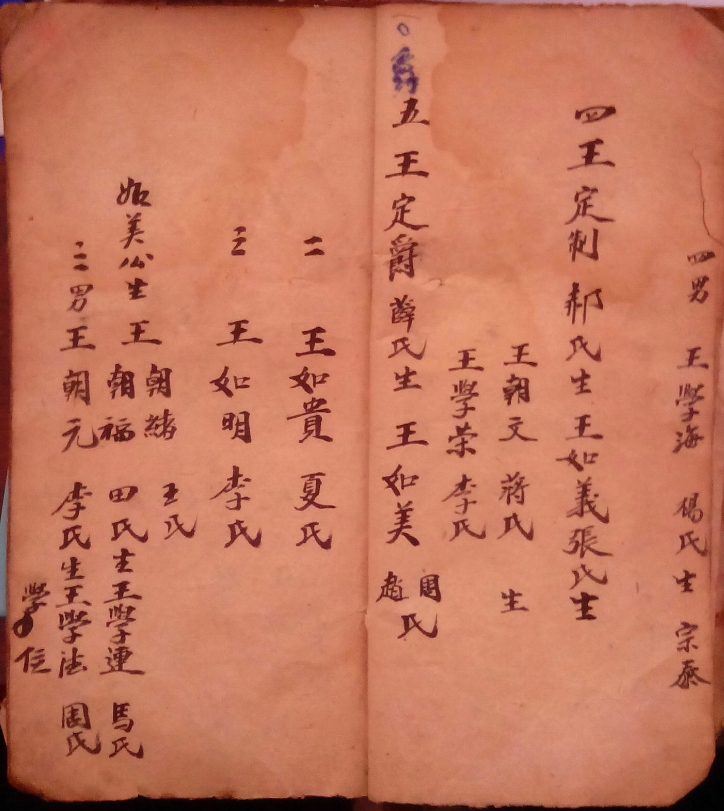 四男 王學海 楊氏生 宗泰
四王定制 郝氏生王如義張氏生
王朝文 蔣氏 生
王學荣 李氏
五王定爵 薛氏生 王如美 周趙氏
二 王如貴 夏氏
三 王如明 李氏
如美公生王朝緒 王氏
朝福 田氏生王學連 馬氏
三男王朝元 李氏生王學法 周氏
學信